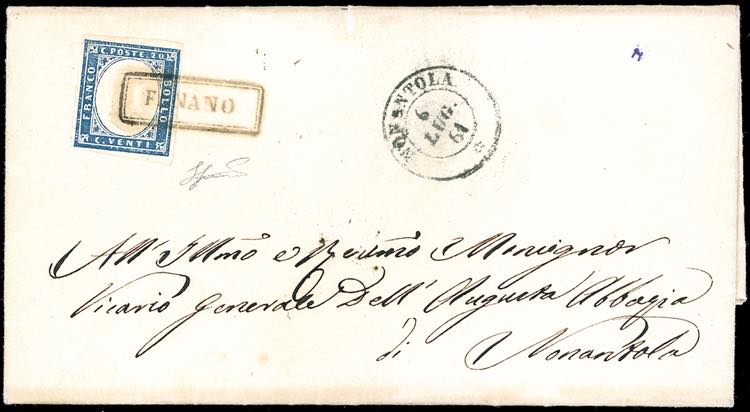 C. POSTE 20
FRANCO
BOLLO
C. VENTI
F NANO
NONANTOLA
6
LUG.
61
All' Illmo e Revmo Monsignor
Vicario Generale Dell' Augusta Abbazia
di
Nonantola